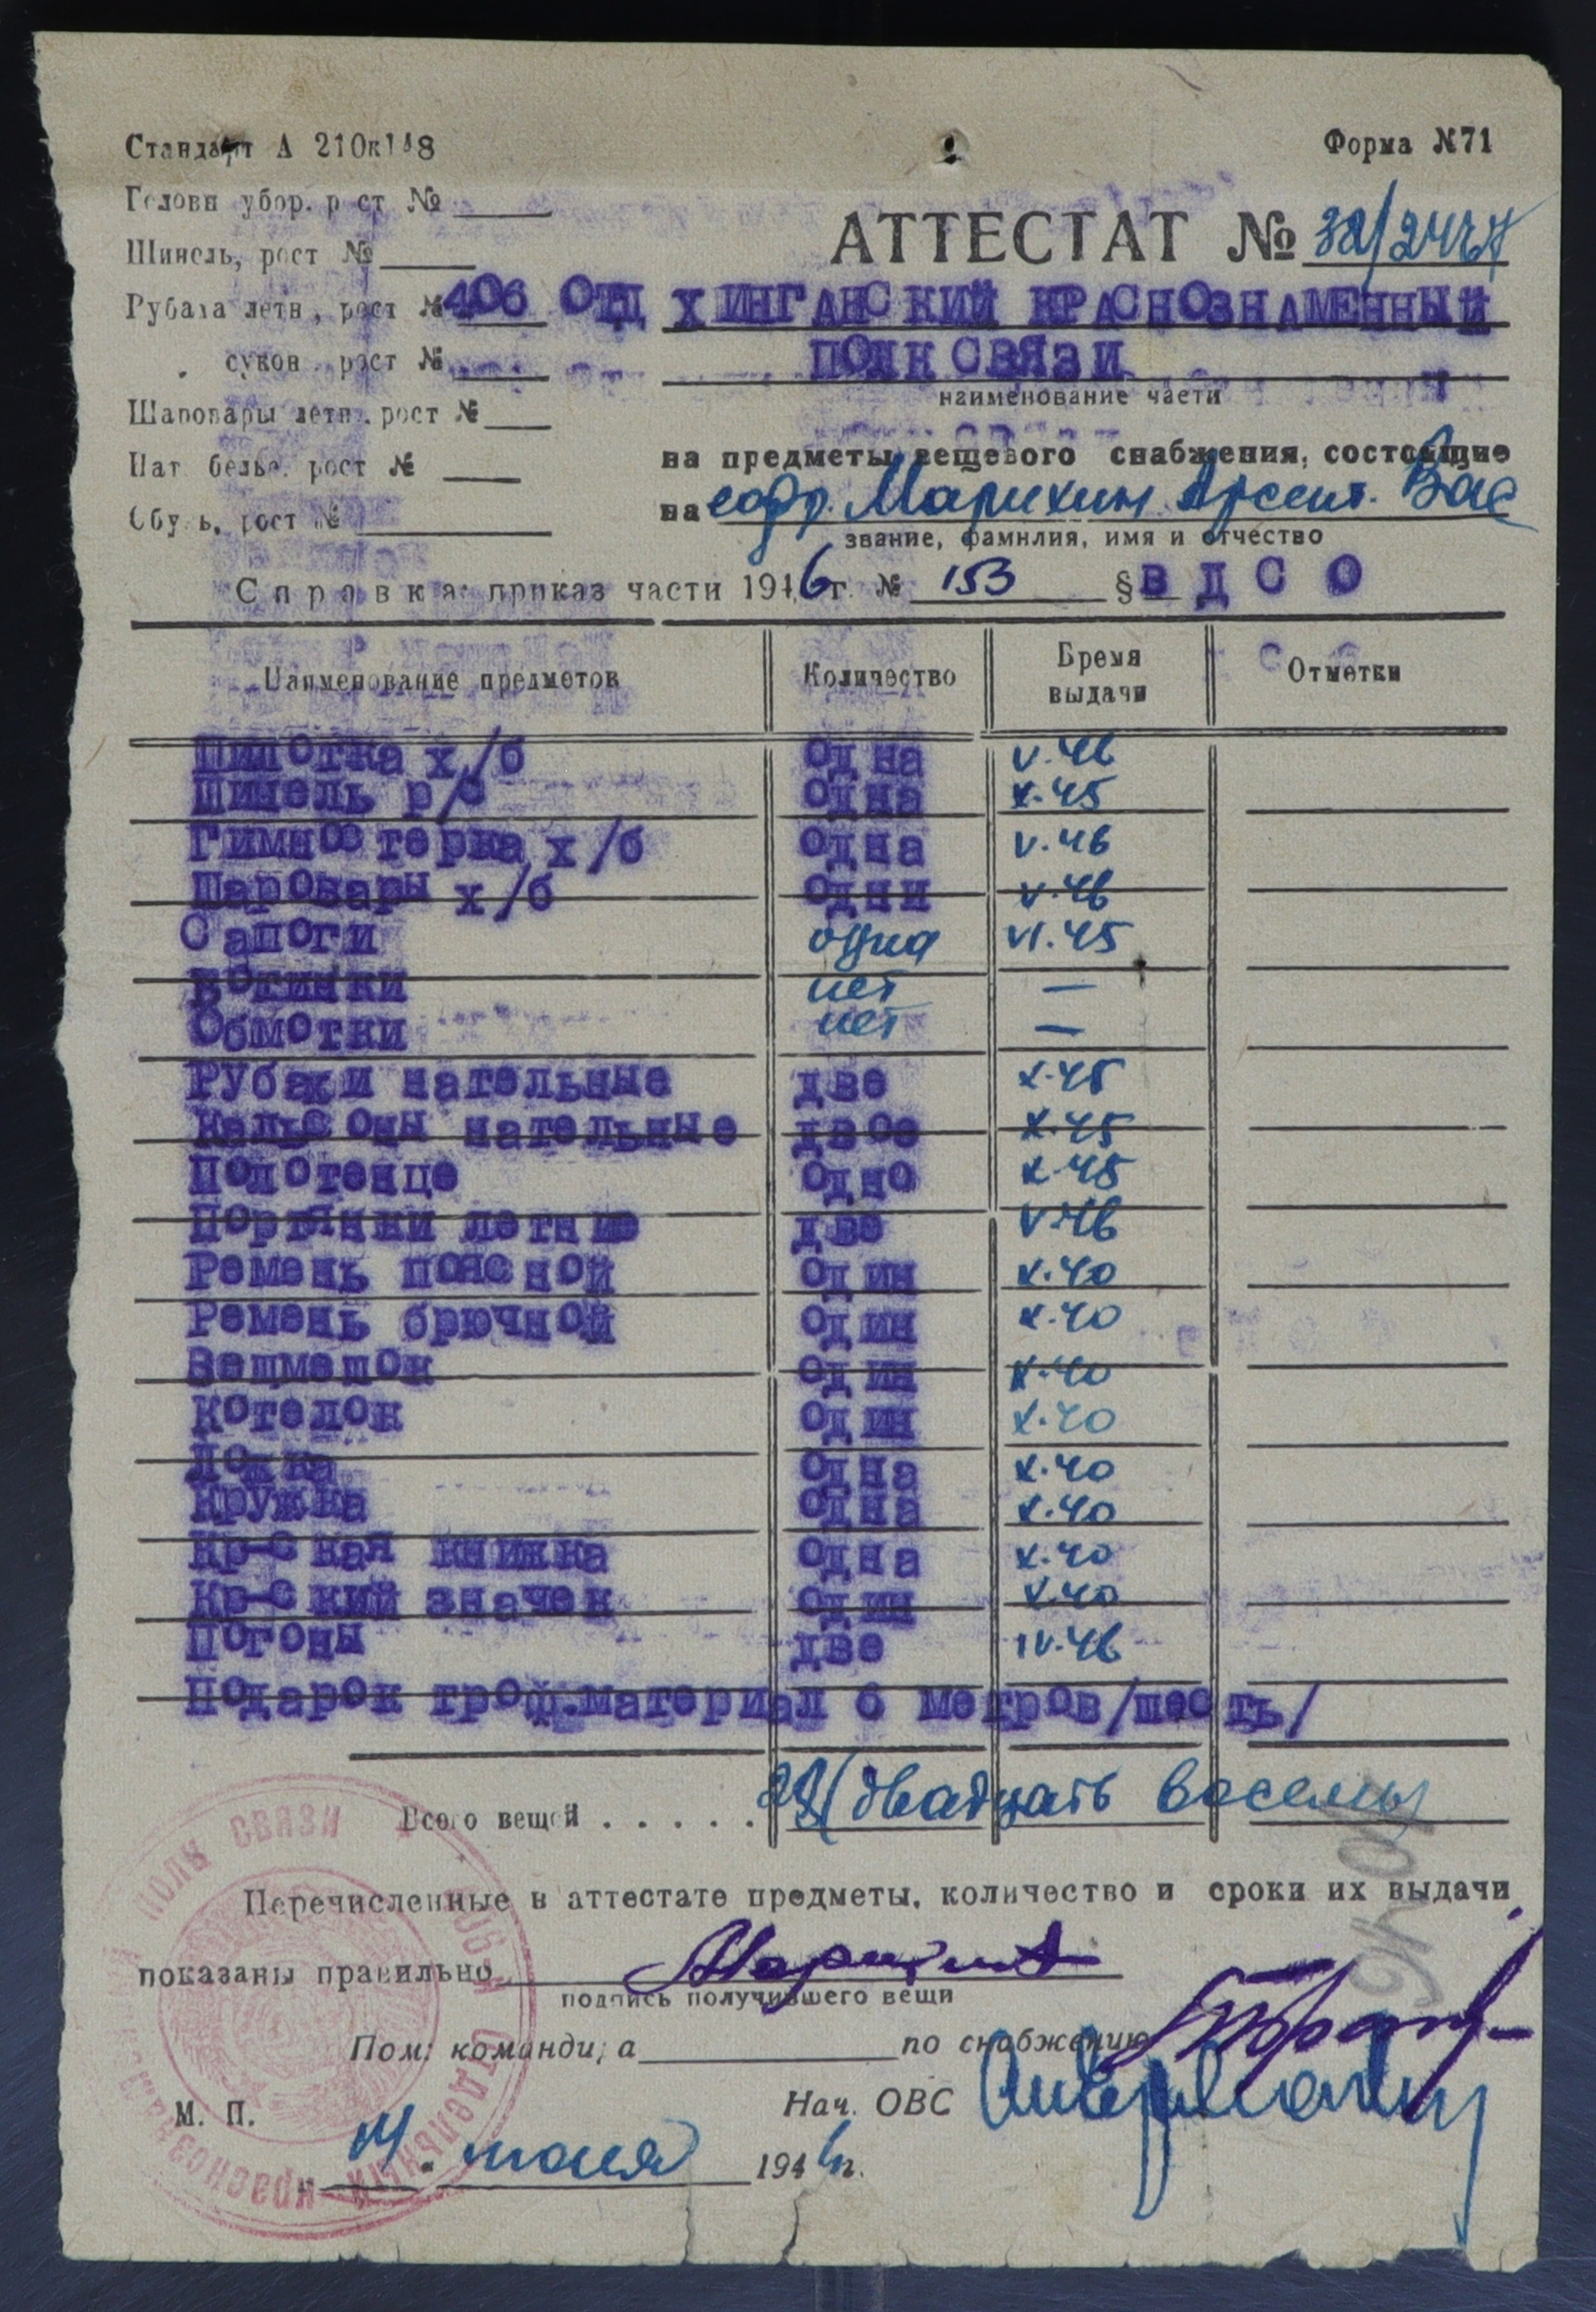 Стандарт А 210х148
Форма №71
Головн убор. рост №
Шинель, рост №
Рубаха летн, рост №
сукон. рост №
Шаровары летн. рост №
Нат белье, рост №
Обувь, рост №
АТТЕСТАТ № 32/244
406 ОТД ХИНГАНСКИЙ КРАСНОЗНАМЕННЫЙ
ПОЛК СВЯЗИ
наименование части
на предметы вещевого снабжения, состоящие
на ефр. Марихин Арсент. Вас
звание, фамилия, имя и отчество
Справка: приказ части 1946 г. № 153 § ВДСО
Наименование предметов Количество Время выдачи Отметки
Пилотка х/б Одна V.46
Шинель р/с Одна X.45
Гимностерка х/б Одна V.46
Шаровары х/б Одни V.46
Сапоги одна VI.45
Ботинки нет —
Обмотки нет —
Рубахи нательные две X.45
Кальсоны нательные двое X.45
Полотенце Одно X.45
Портянки летние две V.46
Ремень поясной Один X.40
Ремень брючной Один X.40
Вещмешок Один X.40
Котелок Один X.40
Ложка Одна X.40
Кружка Одна X.40
Кр-ская книжка Одна X.40
Кр-ский значек Один X.40
Погоны две IV.46
Подарок троф.материал 6 метров/шесть/
Всего вещей . . . . . . 28 (двадцать восемь
Перечисленные в аттестате предметы, количество и сроки их выдачи
показаны правильно
подпись получившего вещи
Пом. командира по снабжению
Нач. ОВС
М. П.
14 июня 1946 г.
ПОЛК СВЯЗИ
Отдельный Краснозн